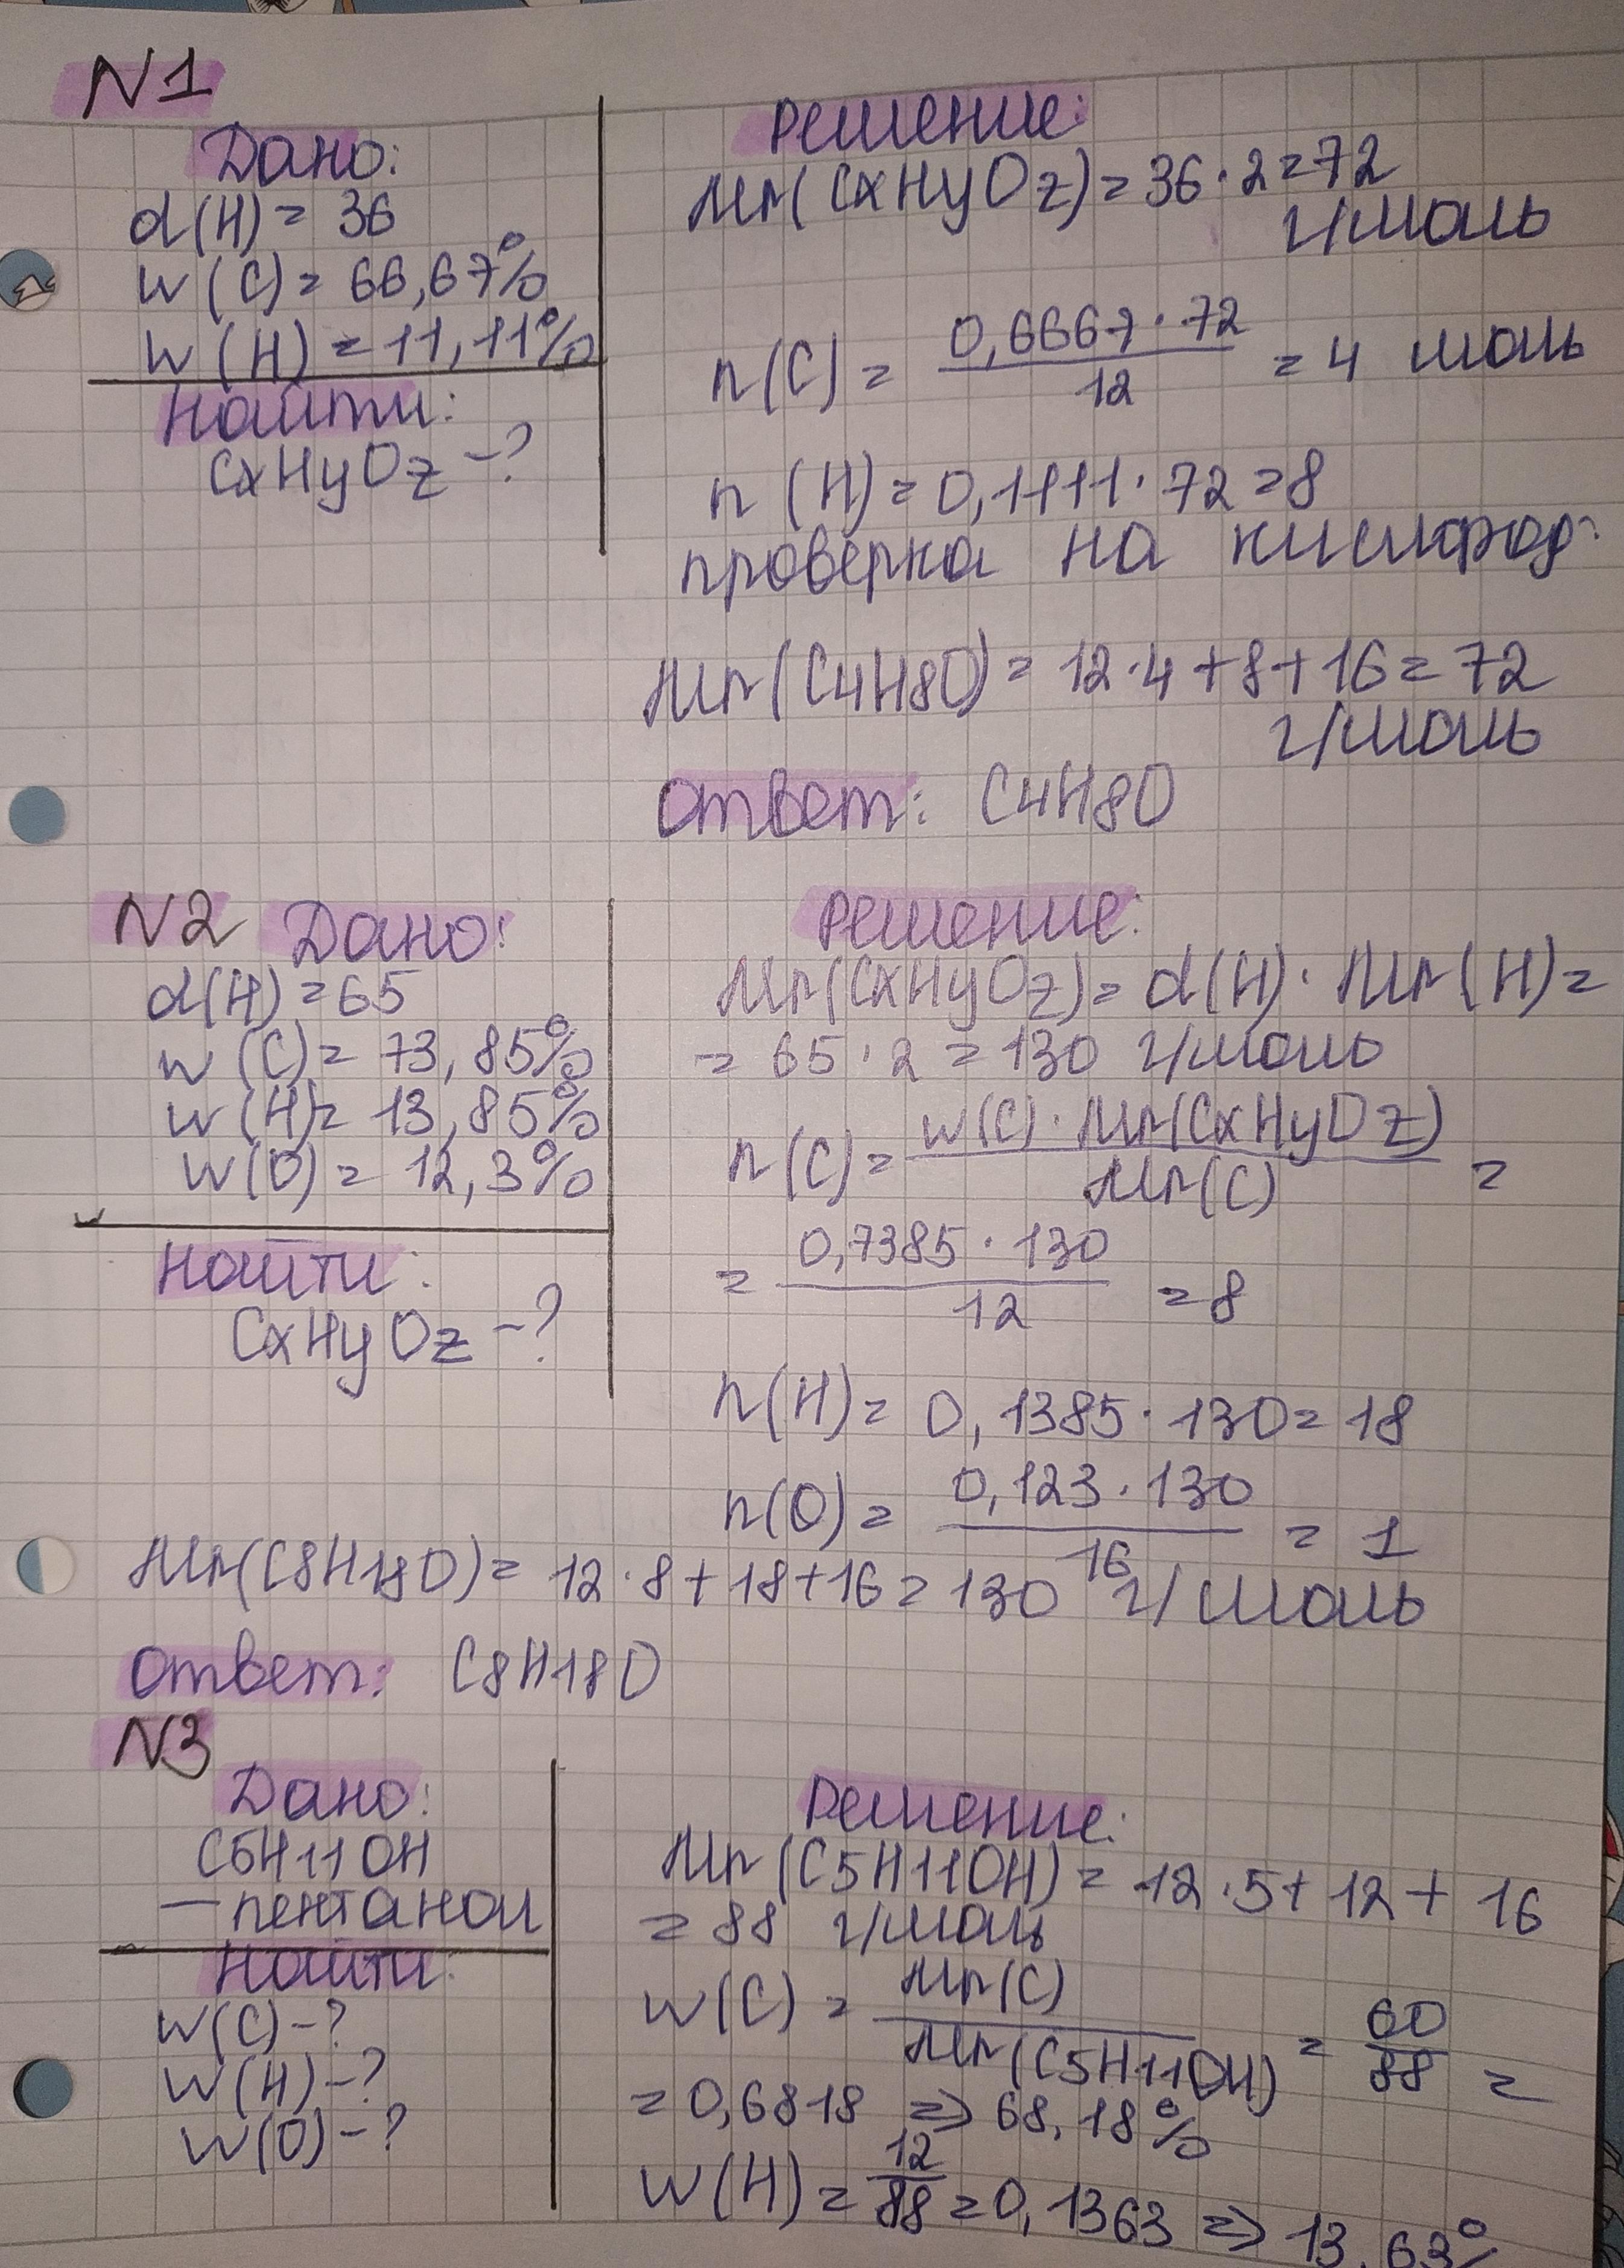 N1
Дано:
d(H) = 36
w(C) = 66,67%
w(H) = 11,11%
Найти:
CxHyOz -?
Решение:
Mr(CxHyOz) = 36·2=72
г/моль
n(C) = 0,6667·72 / 12 = 4 моль
n(H) = 0,1111·72 = 8
проверка на кислород:
Mr(C4H8O) = 12·4+8+16=72
г/моль
Ответ: C4H8O
N2 Дано:
d(H) = 65
w(C) = 73,85%
w(H) = 13,85%
w(O) = 12,3%
Найти:
CxHyOz -?
Решение:
Mr(CxHyOz) = d(H)·Mr(H) =
= 65·2 = 130 г/моль
n(C) = w(C)·Mr(CxHyOz) / Mr(C) =
= 0,7385·130 / 12 = 8
n(H) = 0,1385·130 = 18
n(O) = 0,123·130 / 16 = 1
Mr(C8H18O) = 12·8+18+16=130 г/моль
Ответ: C8H18O
N3
Дано:
C5H11OH
— пентанол
Найти:
w(C) -?
w(H) -?
w(O) -?
Решение:
Mr(C5H11OH) = 12·5+12+16
= 88 г/моль
w(C) = Mr(C) / Mr(C5H11OH) = 60 / 88 =
= 0,6818 => 68,18%
w(H) = 12 / 88 = 0,1363 => 13,63%